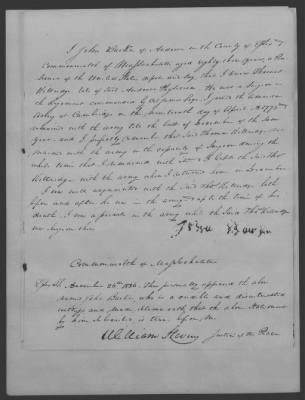 I John Barker of Andover in the County of Essex &
Commonwealth of Massachusetts aged eighty three years, a Pen
sioner of the United States, depose and say, that I knew Thomas
Kittredge late of said Andover Physician. He was a Surgeon in
the Regiment commanded by I joined the American
Army at Cambridge on the nineteenth day of April AD 1775 &
remained with the army till the last of December of the same
year. And I perfectly remember that said Thomas Kittredge
with the army in the capacity of Surgeon during the
whole time that I remained with it. I left the said Thos
Kittredge with the army when I returned home in December
I was well acquainted with the said Thos Kittredge both
before and after he was in the army & up to the time of his
death. I was a private in the army while the said Thos Kittredge
was Surgeon there.
Commonwealth of Massachusetts
Essex Ss. December 26th 1836. Then personally appeared the above
named John Barker, who is a credible and disinterested
witness and made oath that the above statement
by him subscribed, is true. Before me
William Stevens Justice of the Peace